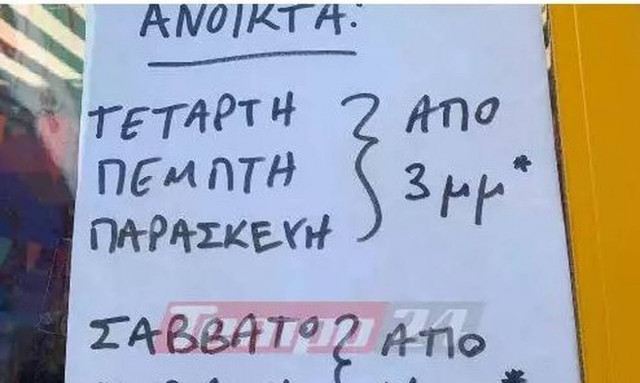 ΑΝΟΙΚΤΑ:
ΤΕΤΑΡΤΗ
ΠΕΜΠΤΗ
ΠΑΡΑΣΚΕΥΗ
} ΑΠΟ
3 μμ*
ΣΑΒΒΑΤΟ } ΑΠΟ